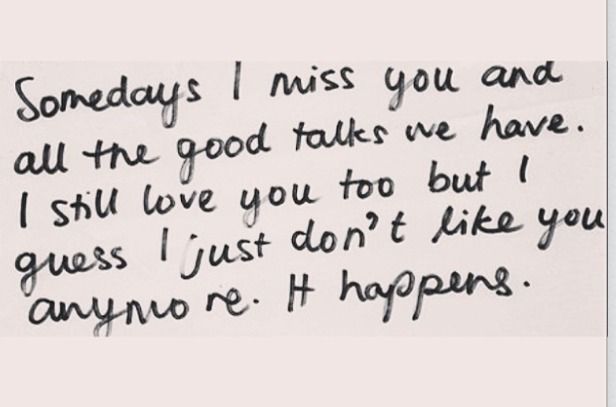 Somedays I miss you and
all the good talks we have.
I still love you too but I
guess I just don't like you
anymore. It happens.